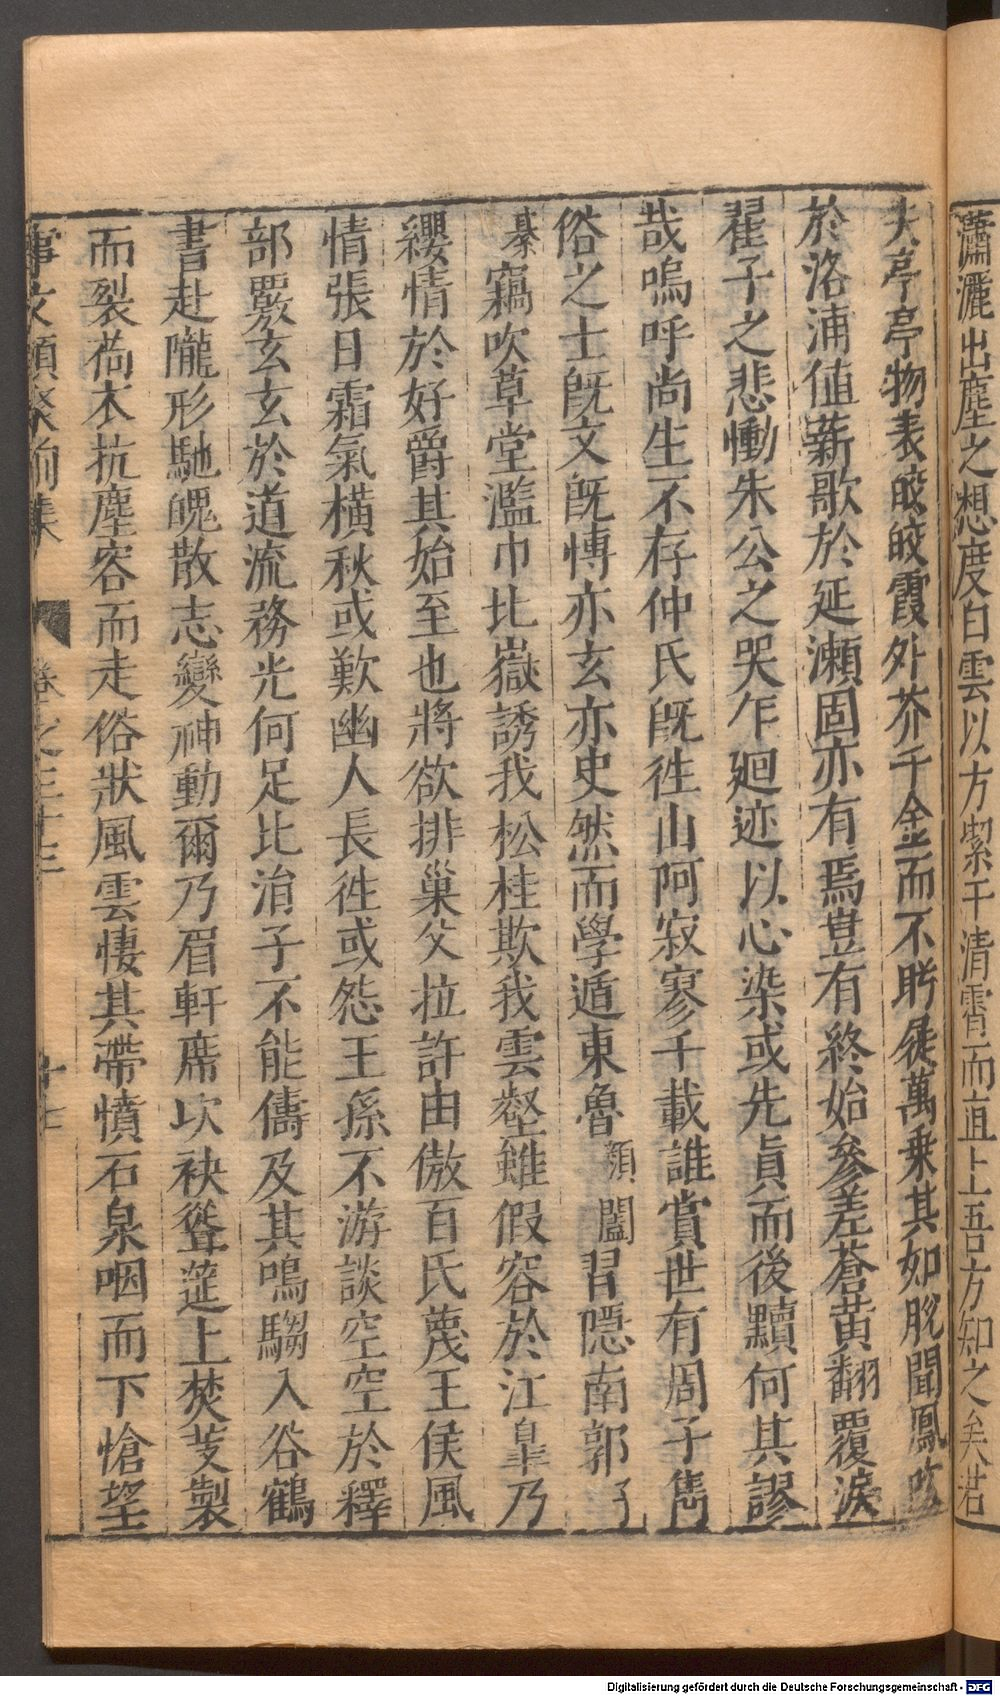 瀟灑出塵之想度白雲以方絜干清霄而直上吾方知之矣若
夫亭亭物表皎皎霞外芥千金而不盻屣萬乗其如脫聞鳳吹
於洛浦值薪歌於延瀬固亦有焉豈有終始參差蒼黄翻覆淚
翟子之悲慟朱公之哭乍廻迹以心染或先貞而後黷何其謬
哉嗚呼尚生不存仲氏旣徃山阿寂寥千載誰賞世有周子雋
俗之士旣文旣博亦玄亦史然而學遁東魯顔闔習隱南郭子
綦竊吹草堂濫巾比嶽誘我松桂欺我雲壑雖假容於江皐乃
纓情於好爵其始至也將欲排巢父拉許由傲百氏蔑王侯風
情張日霜氣橫秋或歎幽人長徃或怨王孫不游談空空於釋
部覈玄玄於道流務光何足比涓子不能儔及其鳴騶入谷鶴
書赴隴形馳魄散志變神動爾乃眉軒席次袂聳筵上焚芰製
而裂荷衣抗塵容而走俗狀風雲悽其帶憤石泉咽而下愴望
事文類聚前集 卷之三十三 十七
Digitalisierung gefördert durch die Deutsche Forschungsgemeinschaft - DFG